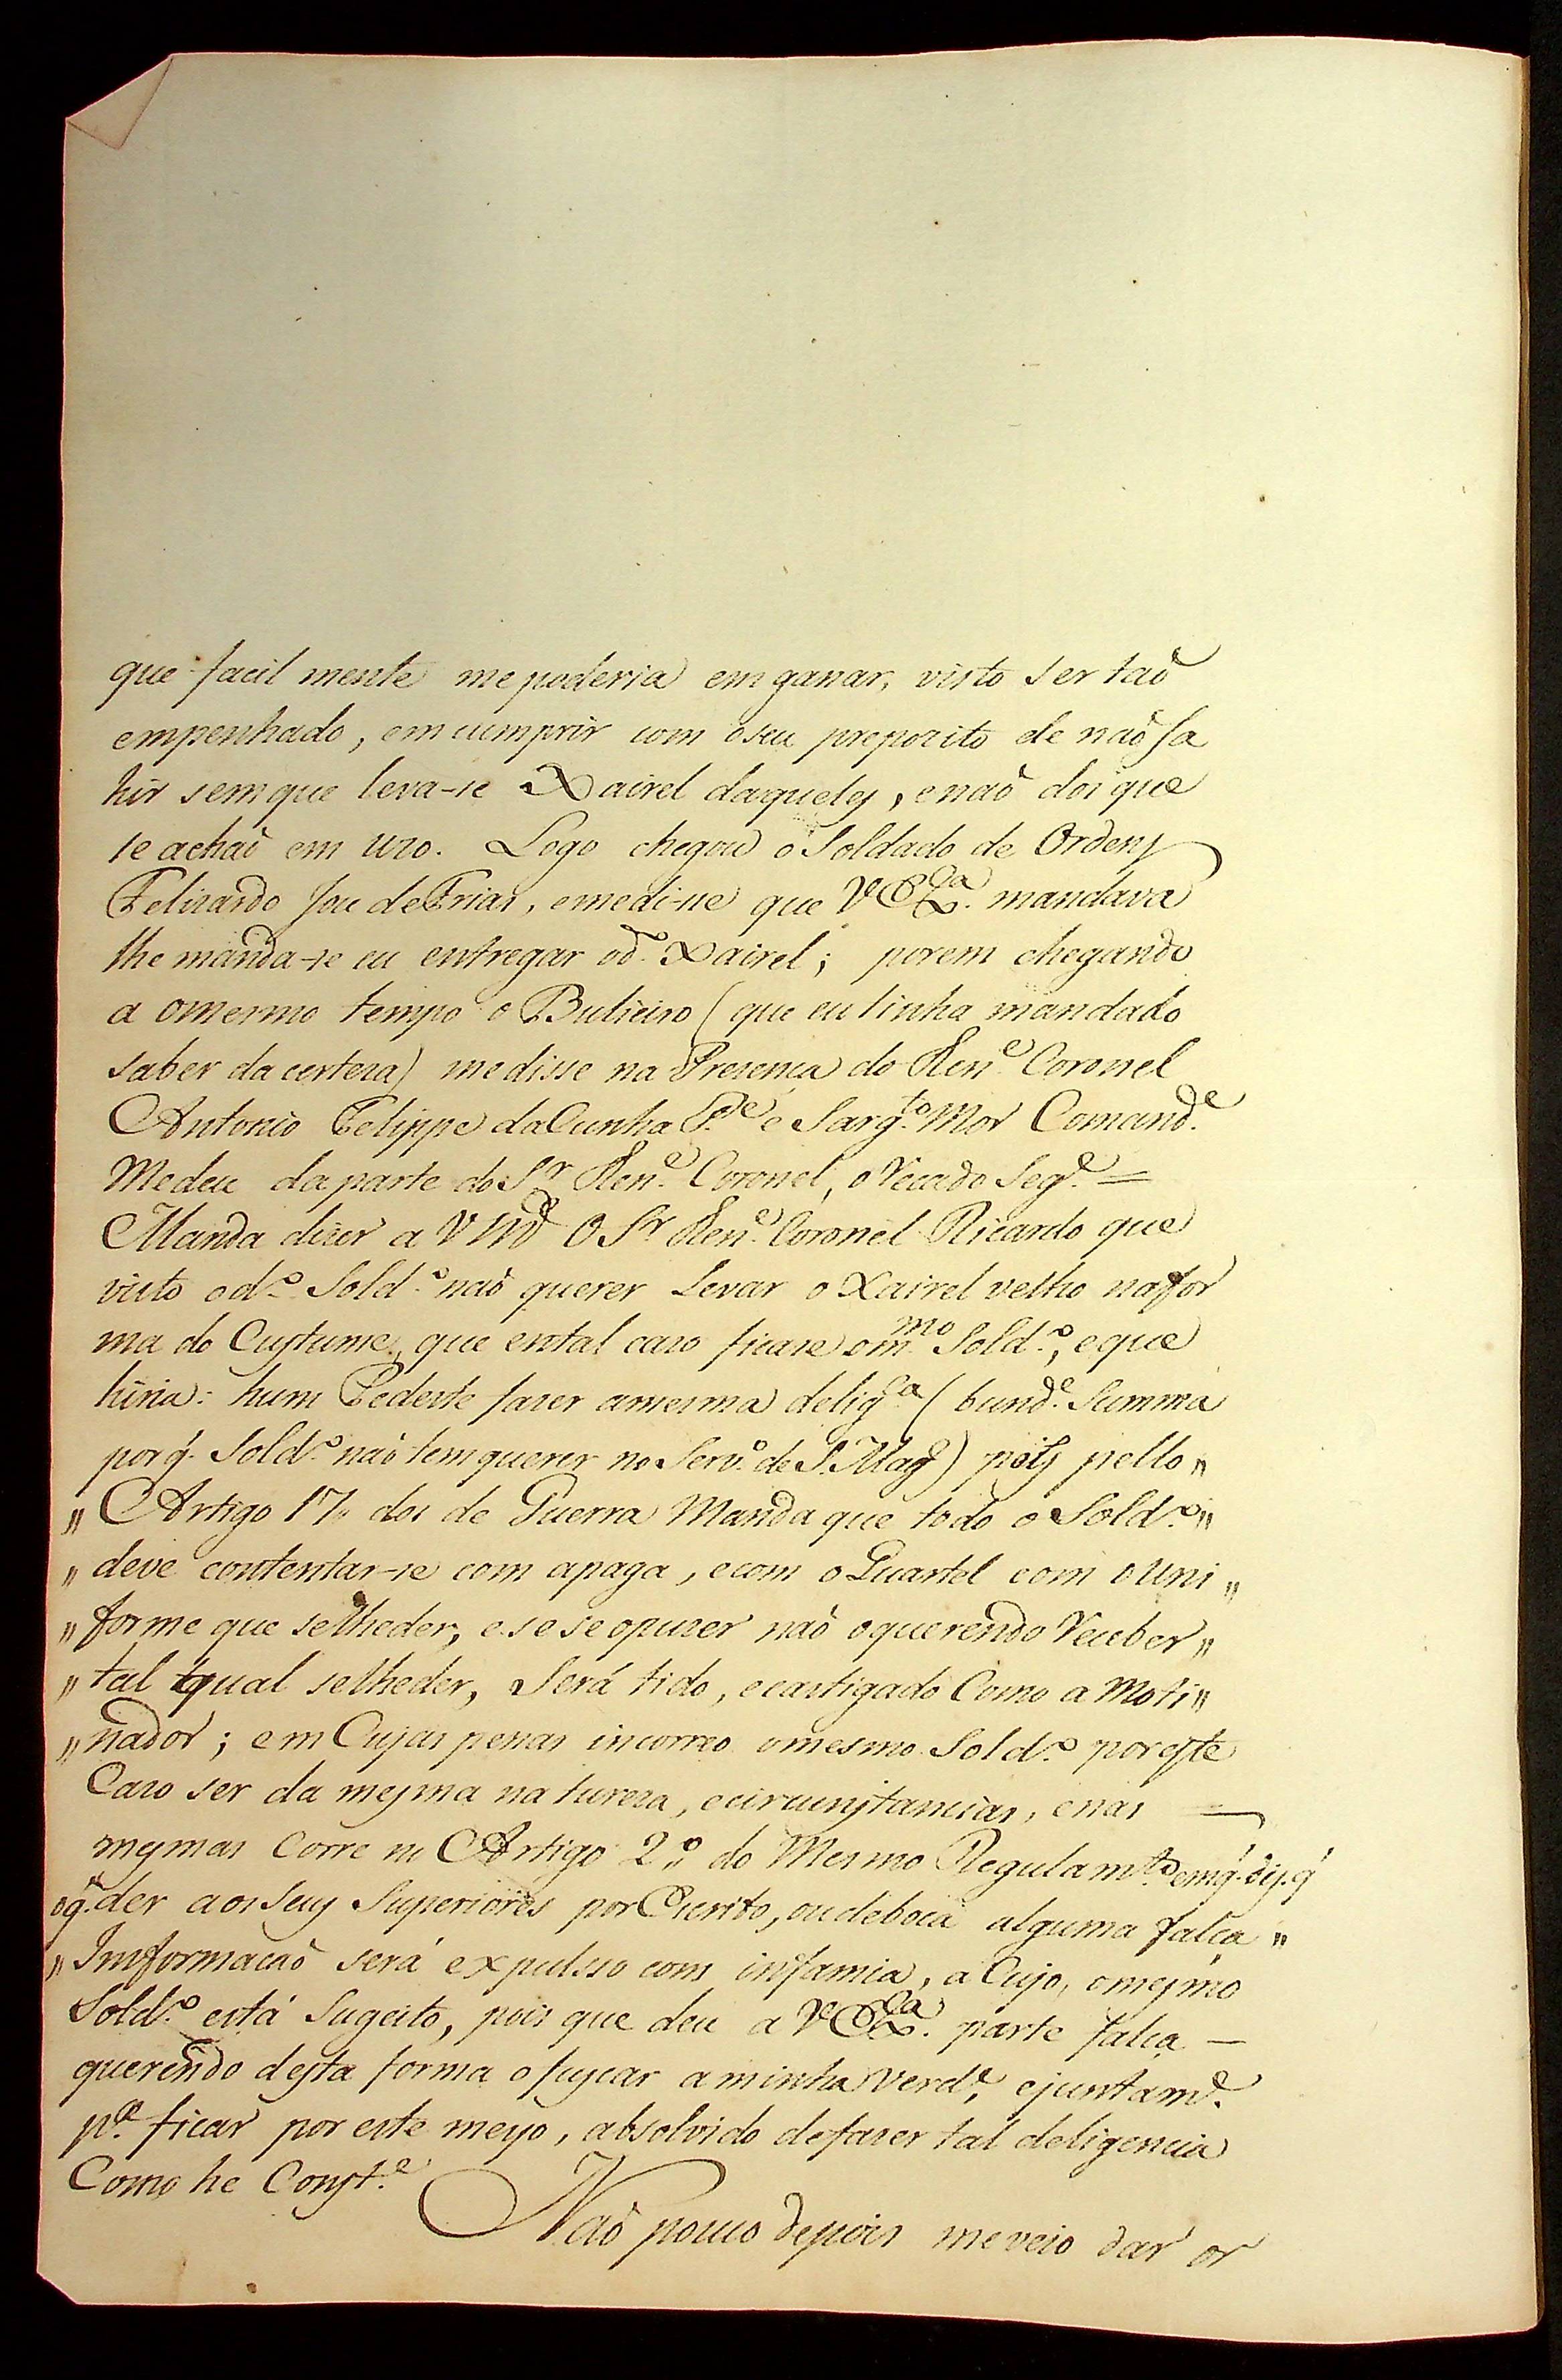 que facil mente me poderia em ganar, visto ser taõ
empenhado, em cumprir com oseu preporito de naõ sa
hir sem que leva-se Xairel daqueles, enaõ dos que
se achaõ em uzo. Logo chegou o Soldado de Ordens
Felizardo Joze de Frias, emedi-se que V. Exª. mandava
lhe manda-se eu entregar od.º Xairel; porem chegando
a omesmo tempo o Bulieiro (que eu tinha mandado
saber da certeza) medisse na Presença do Ten.e Coronel
Antonio Felippe da Cunha P.de e Sarg.to Mor Comand.e
Medeu da parte do Sr Ten.e Coronel, o Recado Seg.e =
Manda dizer a VMce O Sr Ten.e Coronel Ricardo que
visto od.º Sold.º naõ querer Levar o Xairel velho nafor
ma do Custume, que ental cazo ficase om.mo Sold.º, eque
hiria: hum Pedeste fazer amesma delig.ca ( Summa
porq. Sold.º naõ tem querer no Serv.º de S. Mag.e) pois pello "
" Artigo 17" dos de Guerra Manda que todo o Sold.º "
" deve contentar-se com apaga, ecom o Quartel com ouni "
" forme que selheder, e se se opuzer naõ oquerendo Receber "
" tal qual selheder, Será tido, ecastigado Como a Moti "
" nador; em Cujas penas incorreo omesmo Sold.º poreste
Cazo ser da mesma natureza, ecircunstancias, enas —
mesmas Corre no Artigo 2.º do Mesmo Regulam.to emq. diz. q
oq. der aos Seus Superiores por Escrito, oudeboca alguma falça "
" Imformacaõ será expulsso com infamia, a Cujo, omesmo
Sold.º está Sugeito, pois que deu a V. Exª. parte falça —
querendo desta forma ofuscar aminha verd.e, ejuntam.e
p.ª ficar por este meyo, absolvido defazer tal deligencia
Como he Const.e
Naõ pouco depois me veio dar or